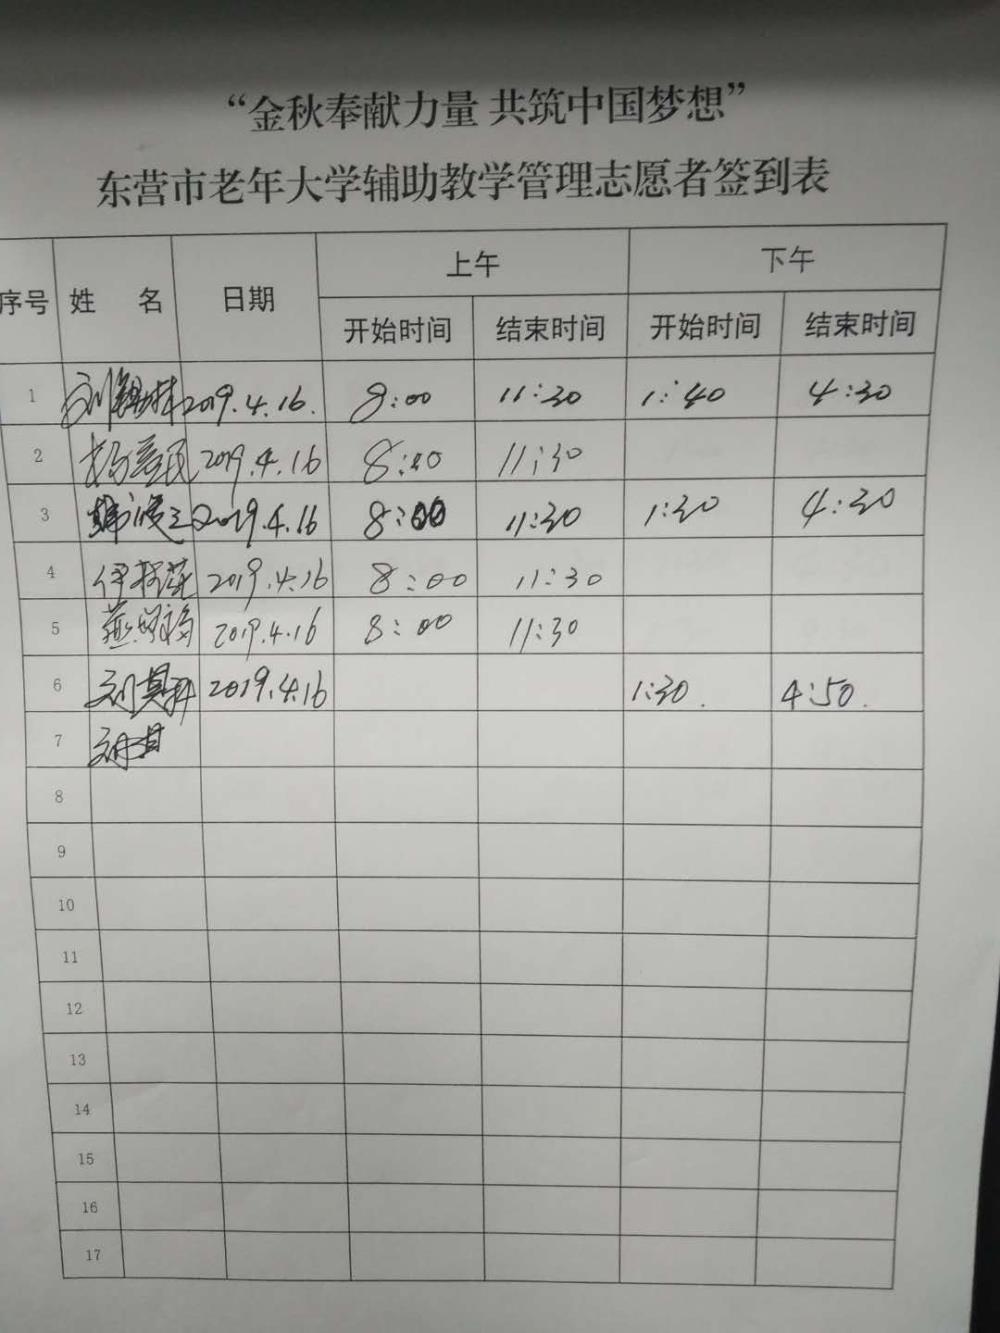 “金秋奉献力量 共筑中国梦想”
东营市老年大学辅助教学管理志愿者签到表
序号 姓 名 日期 上午 下午
开始时间 结束时间 开始时间 结束时间
1 2019.4.16. 8:00 11:30 1:40 4:30
2 2019.4.16 8:00 11:30
3 2019.4.16 8:00 11:30 1:30 4:30
4 2019.4.16 8:00 11:30
5 2019.4.16 8:00 11:30
6 2019.4.16 1:30. 4:50.
7
8
9
10
11
12
13
14
15
16
17